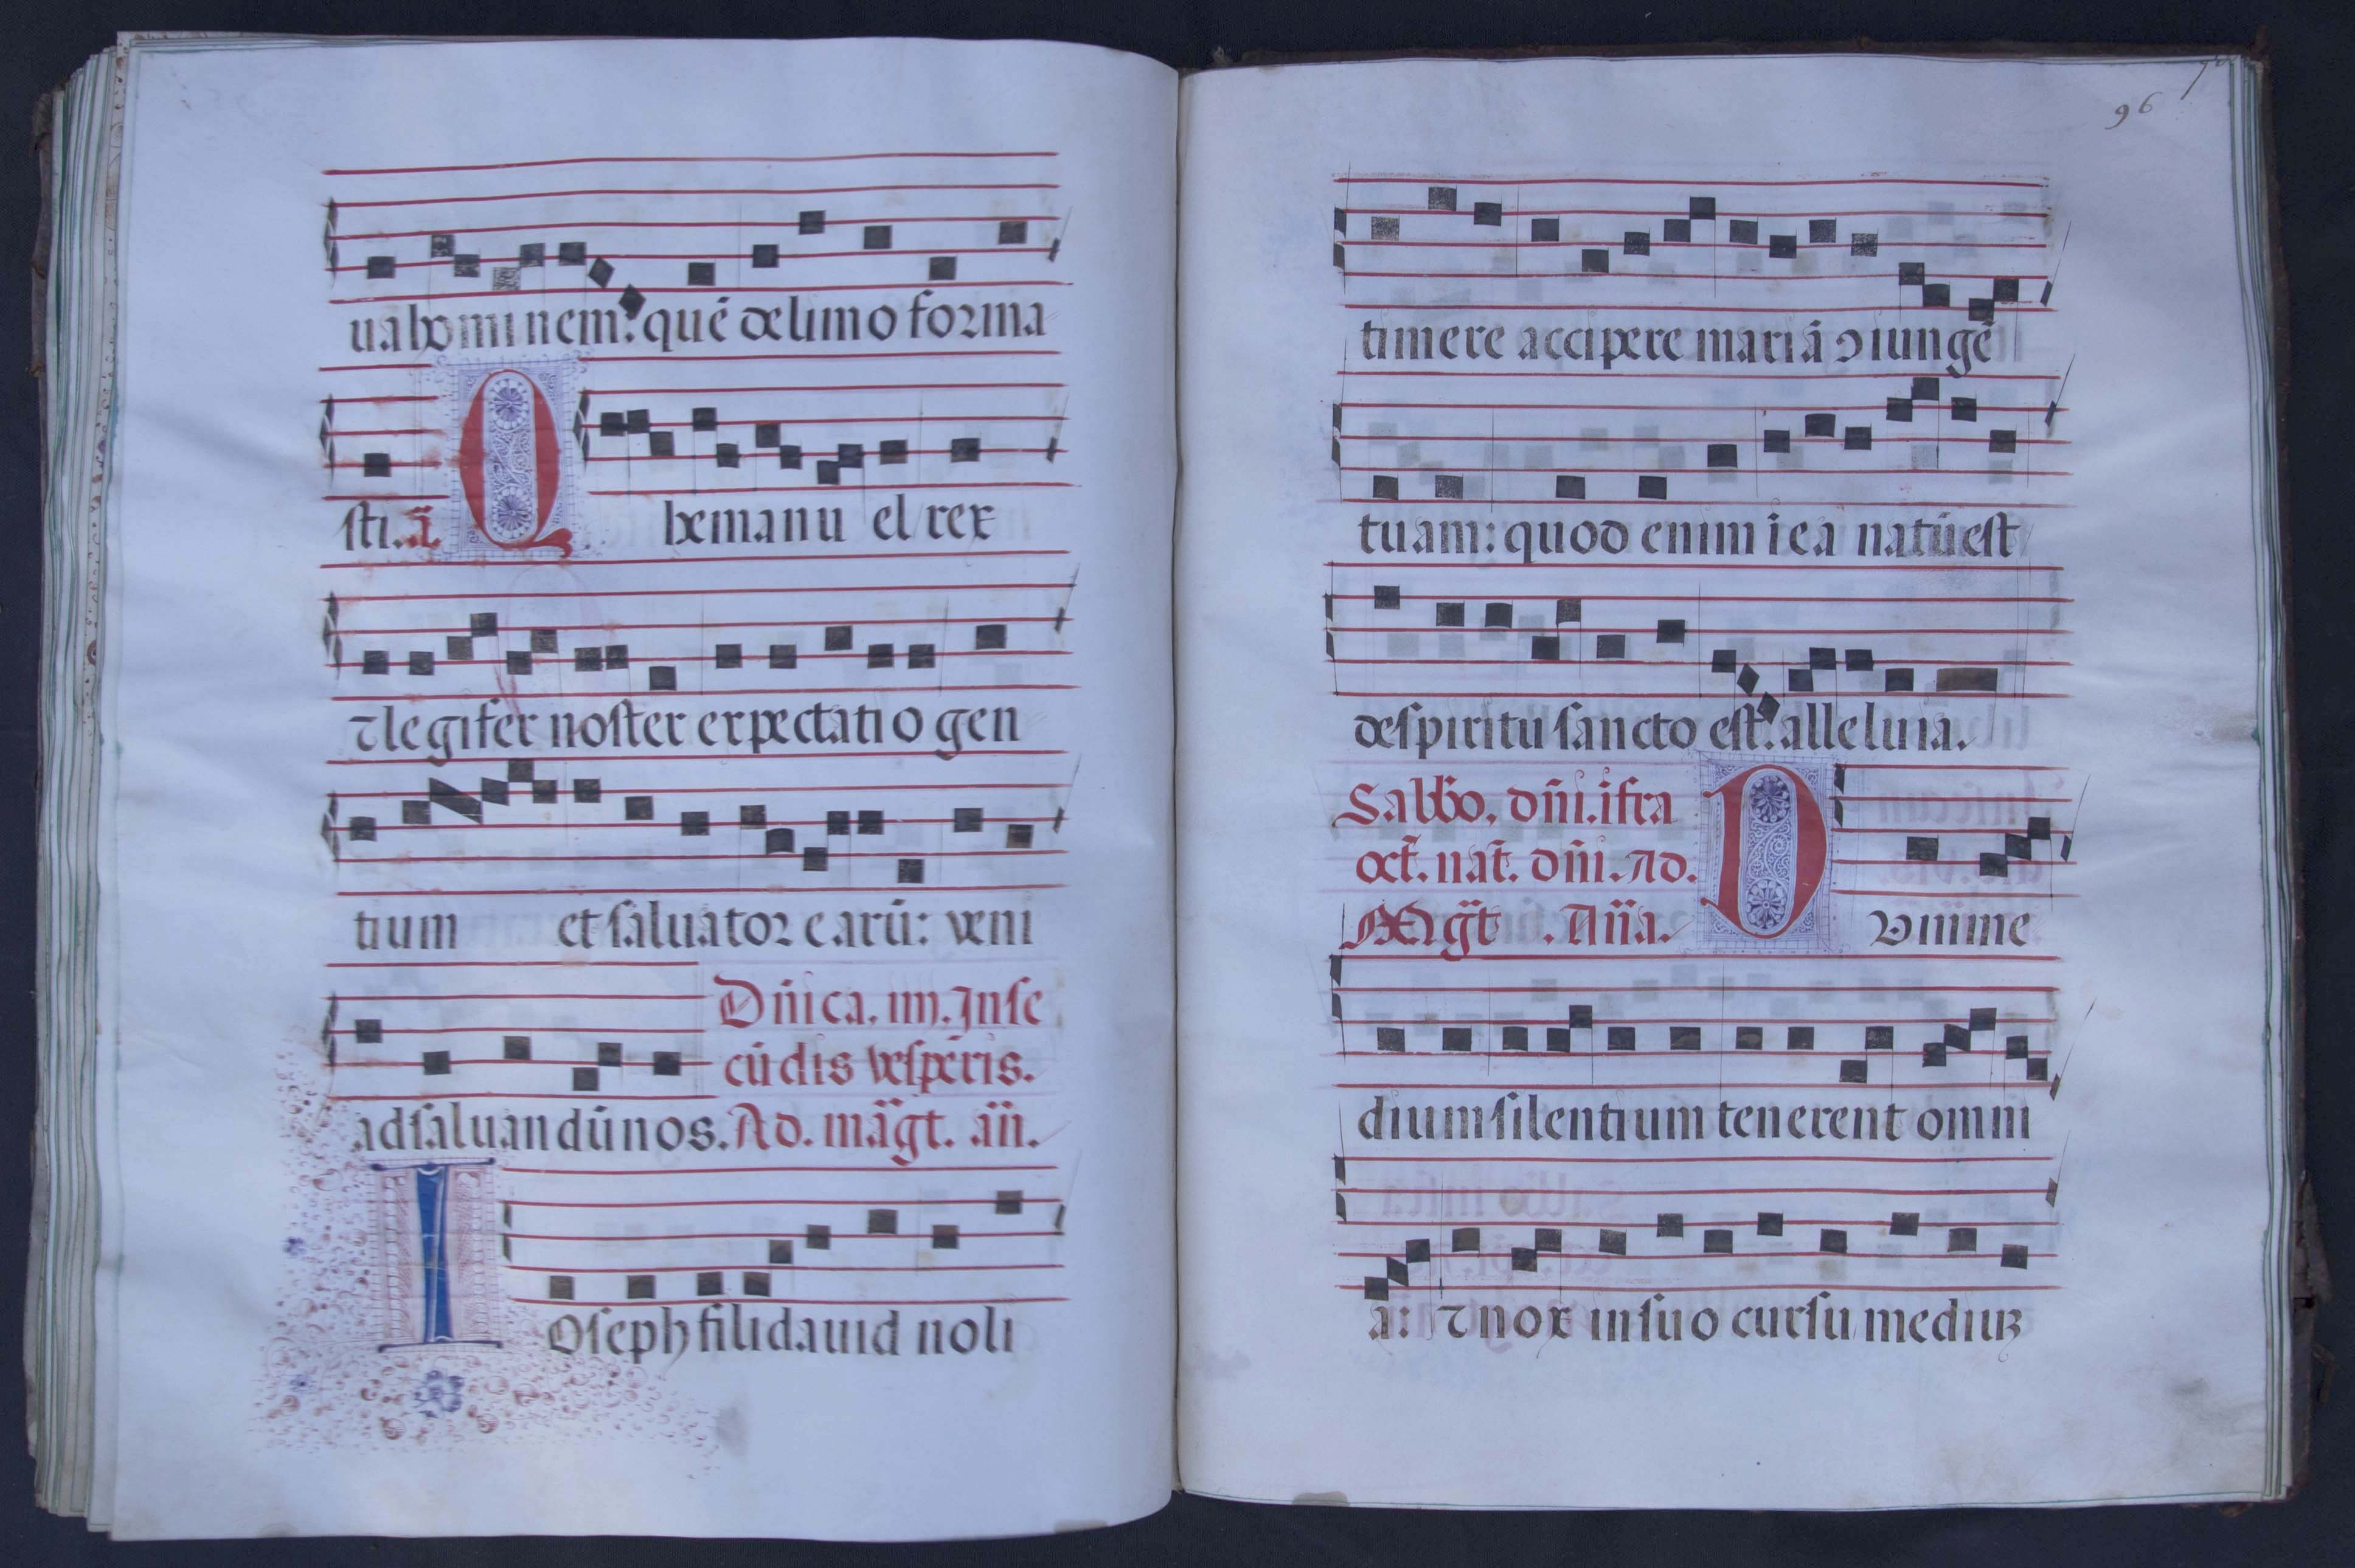 ua hominem: quē de limo forma
sti. ā. O
be manu el rex
⁊ legifer noster expectatio gen
tium et saluator earū: veni
Dñica. iiij. In se
cūdis vesperis.
ad saluandū nos. Ad. mãgt. añ.
I
Oseph fili dauid noli
96
timere accipere mariā ↄiungē
tuam: quod enim ī ea natū est
de spiritu sancto est. alleluia.
Sabbo. dñi. ifra
oct. nat. dñi. Ad.
Mãgt. Aña.
D
Vm me
dium silentium tenerent omni
a: ⁊ nox in suo cursu mediuꝫ